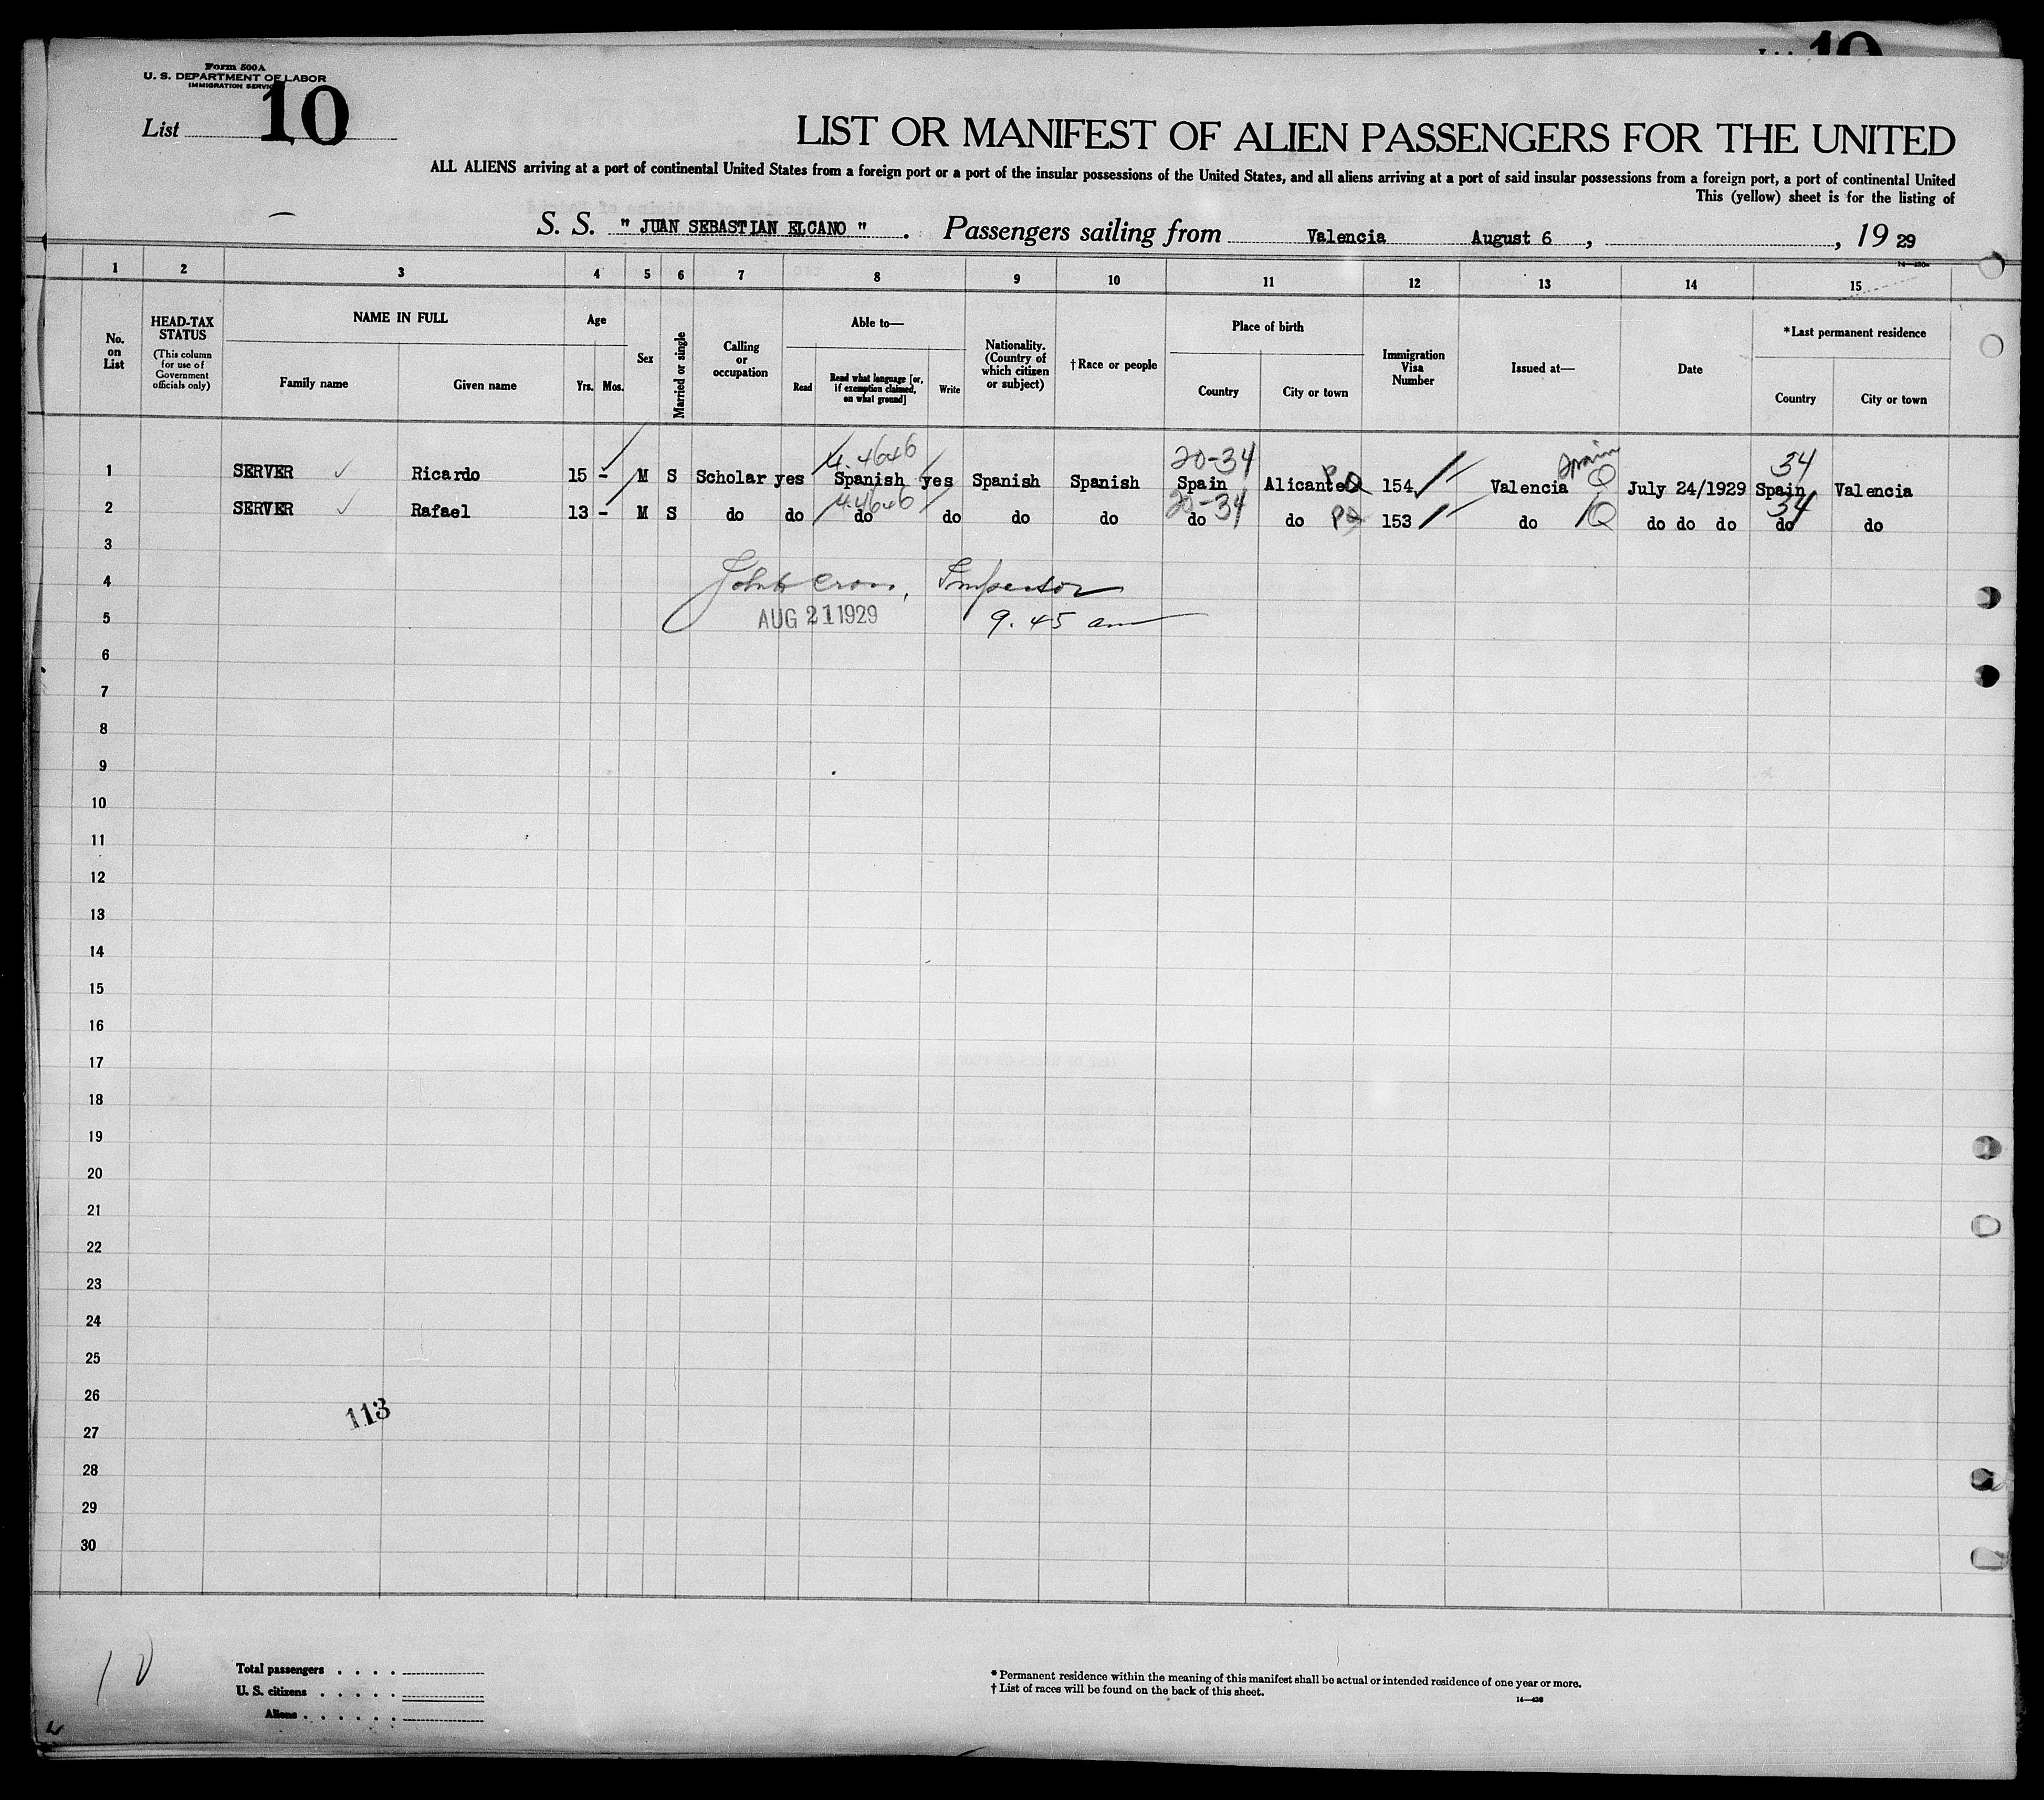 10
Form 500A
U. S. DEPARTMENT OF LABOR
IMMIGRATION SERVICE
List 10
LIST OR MANIFEST OF ALIEN PASSENGERS FOR THE UNITED
ALL ALIENS arriving at a port of continental United States from a foreign port or a port of the insular possessions of the United States, and all aliens arriving at a port of said insular possessions from a foreign port, a port of continental United
This (yellow) sheet is for the listing of
S. S. " JUAN SEBASTIAN ELCANO ". Passengers sailing from Valencia August 6, , 19 29
1 2 3 4 5 6 7 8 9 10 11 12 13 14 15
No. on List
HEAD-TAX STATUS (This column for use of Government officials only)
NAME IN FULL
Family name Given name
Age
Yrs. Mos.
Sex
Married or single
Calling or occupation
Able to—
Read
Read what language [or, if exemption claimed, on what ground]
Write
Nationality. (Country of which citizen or subject)
†Race or people
Place of birth
Country City or town
Immigration Visa Number
Issued at—
Date
*Last permanent residence
Country City or town
4.4646 20-34 Spain 34
1 SERVER Ricardo 15 - M S Scholar yes Spanish yes Spanish Spanish Spain Alicante PQ 154 Valencia Q July 24/1929 Spain Valencia
4.4646 20-34 34
2 SERVER Rafael 13 - M S do do do do do do do do PQ 153 do Q do do do do do
3
4
Inspector
5
AUG 21 1929 9.45 am
6
7
8
9
10
11
12
13
14
15
16
17
18
19
20
21
22
23
24
25
26
113
27
28
29
30
10
Total passengers . . . .
U. S. citizens . . . . .
Aliens . . . . . .
* Permanent residence within the meaning of this manifest shall be actual or intended residence of one year or more.
† List of races will be found on the back of this sheet.
14—430